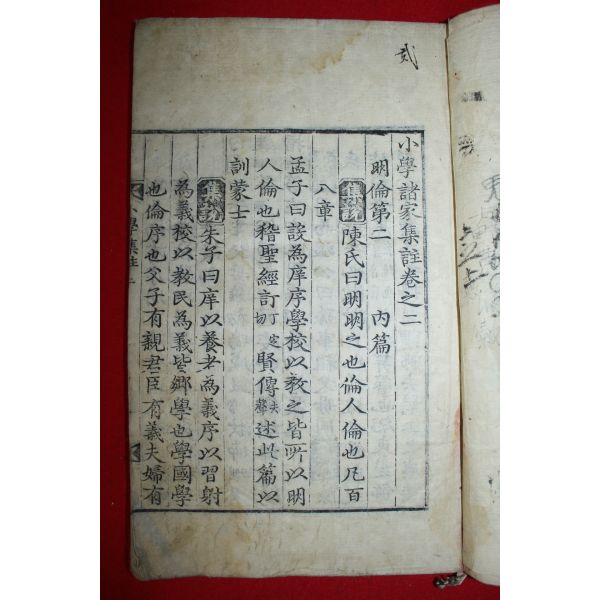 貳
小學諸家集註卷之二
明倫第二 內篇
集說 陳氏曰明明之也倫人倫也凡百
八章
孟子曰設為庠序學校以教之皆所以明
人倫也稽聖經訂丁定切賢傳去聲述此篇以
訓蒙士
集說 朱子曰庠以養老為義序以習射
為義校以教民為義皆鄉學也學國學
也倫序也父子有親君臣有義夫婦有
小學集註 二